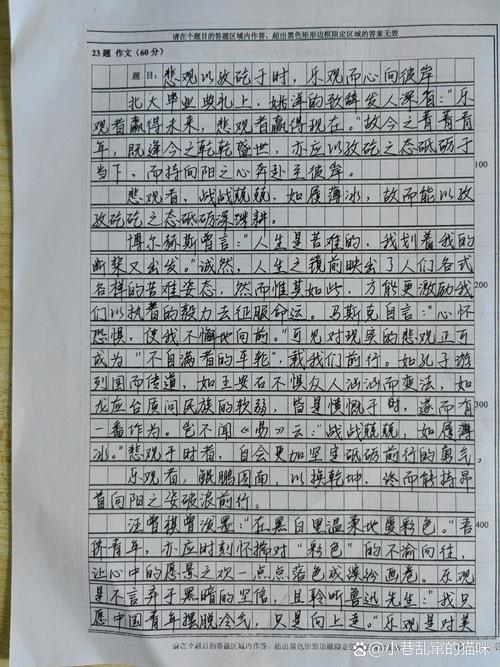 请在个题目的答题区域内作答，超出黑色矩形边框限定区域的答案无效
23题 作文(60分)
题目：悲观以孜矻于时，乐观而心向彼岸
北大毕业典礼上，姚洋的致辞发人深省："乐
观者赢得未来，悲观者赢得现在。"故今之青青青
年，既逢今之乾乾盛世，亦应以孜矻之态砥砺于
当下，而持向阳之心奔赴至彼岸。
100
悲观者，战战兢兢，如履薄冰，故而能以孜
孜矻矻之态砥砺深耕。
博尔赫斯曾言："人生是苦难的，我划着我的
断桨又出发。"诚然，人生之镜前映出了人们各式
各样的苦难姿态，然而惟其如此，方能更激励我
200
们以执着的毅力去征服命运。马斯克自言："心怀
恐惧，使我不懈地向前。"可见对现实的悲观正可
成为"不自满者的车轮"，载我们前行。如孔子游
列国而传道，如王安石不惧众人汹汹而变法，如
龙应台质问民族的软弱，皆是慷慨于时，遂而有
300
一番作为。岂不闻《易》云："战战兢兢，如履薄
冰。"悲观于时者，自会更加坚定砥砺前行的勇气
乐观者，鲲鹏图南，以换乾坤，终而能持昂
首向阳之姿破浪前行。
汪曾祺曾泼墨："在黑白里温柔地爱彩色。"吾
400
侪青年，亦应时刻怀揣对"彩色"的不渝向往，
让心中的愿景之欢一点点落色成缤纷画卷。乐观
是不言弃于黑暗的坚信，且聆听鲁迅先生："我只
愿中国青年摆脱冷气，只是向上走。"乐观是对美
请在各题目的答题区域内作答，超出黑色矩形边框限定
小巷乱窜的猫咪